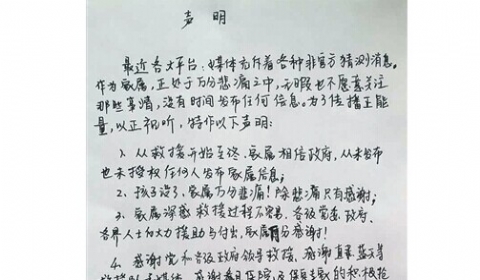 声明
最近各大平台、媒体充斥着各种非官方猜测消息。
作为家属,正处于万分悲痛之中,无暇也不愿意关注
那些事情,没有时间发布任何信息。为了传播正能
量,以正视听,特作以下声明:
1、从救援开始至终,家属相信政府,从未发布
也未授权任何人发布家属信息;
2、孩子没了,家属万分悲痛!除悲痛只有感谢;
3、家属深感救援过程不容易,各级党委、政府、
各界人士给大力援助与付出,家属万分感谢!
4、感谢党和各级政府领导救援,感谢
感谢 医院 的积极抢